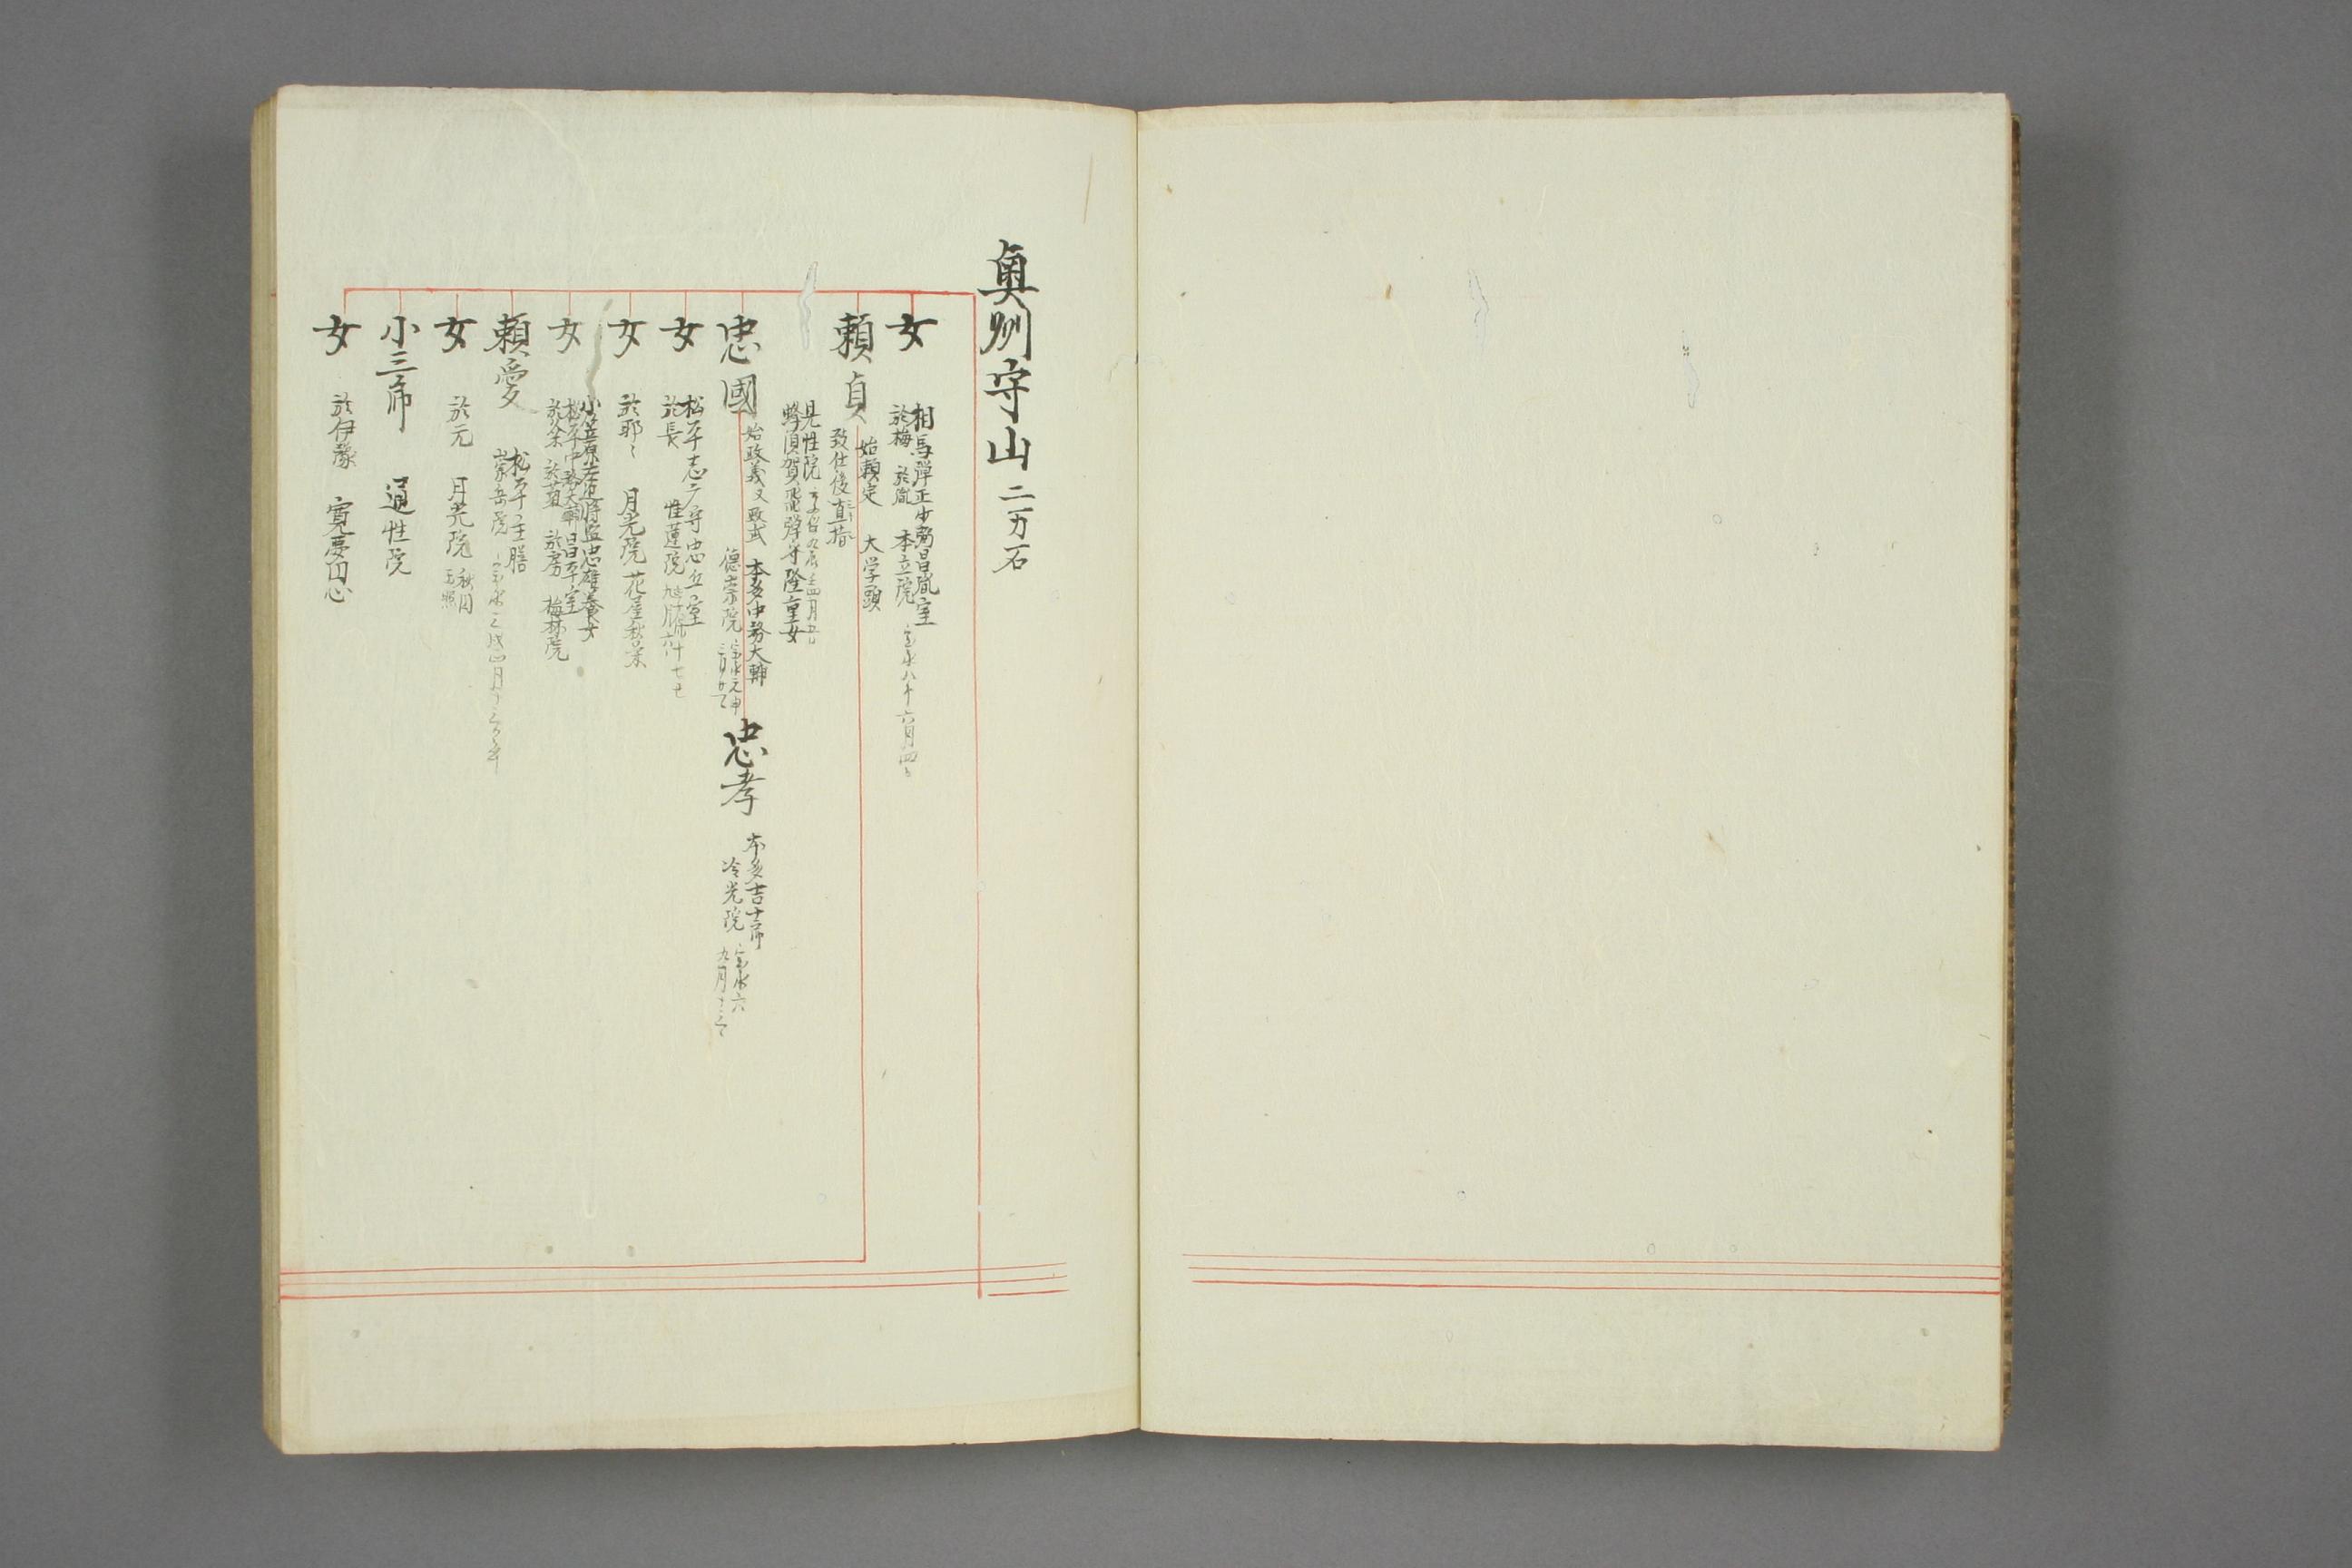 奥州守山 二万石
女
相馬弾正少弼昌胤室
於梅 於胤 本立院 宝永八年六月四日
頼貞 始頼定 大学頭
致仕後直指
見性院
蜂須賀飛弾守隆重女
忠國 始政義又政武 本多中務大輔
徳崇院 宝永元申
忠孝 本多吉十郎
冷光院 宝永六
九月
女
松平志广守忠丘室
於長 惟蓮院
女
於耶々 月光院 花屋秋栄
女
小笠原右近将監忠雄養女
松平中務大輔昌平室
於糸 於菊 於房 梅林院
頼愛 松平主膳
崇岳院
女
於元 月光院 秋月
玉照
小三郎 通性院
女
於伊豫 寛屡因心